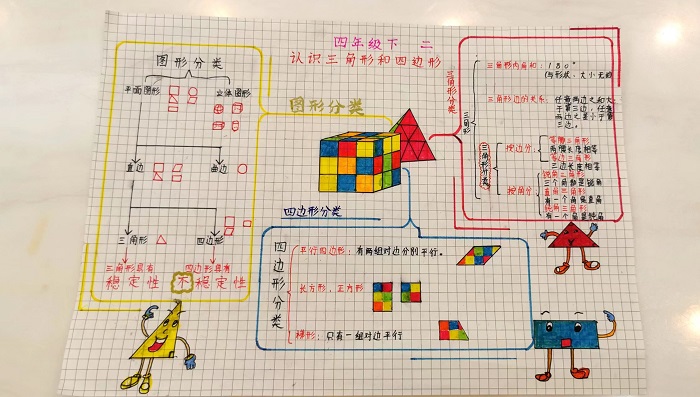 四年级下 二
认识三角形和四边形
图形分类
平面图形
立体图形
直边
曲边
三角形
四边形
三角形具有
稳定性
四边形具有
不稳定性
图形分类
四边形分类
四边形分类
平行四边形：有两组对边分别平行。
长方形，正方形
梯形：只有一组对边平行
三角形分类
三角形
三角形内角和：180°
三角形边的关系：任意两边之和大
于第三边，任意
两边之差小于第
三边。
三角形分类
按边分：
等腰三角形
两腰长度相等
等边三角形
三边长度相等
按角分：
锐角三角形
三个角都是锐角
直角三角形
有一个角是直角
钝角三角形
有一个角是钝角